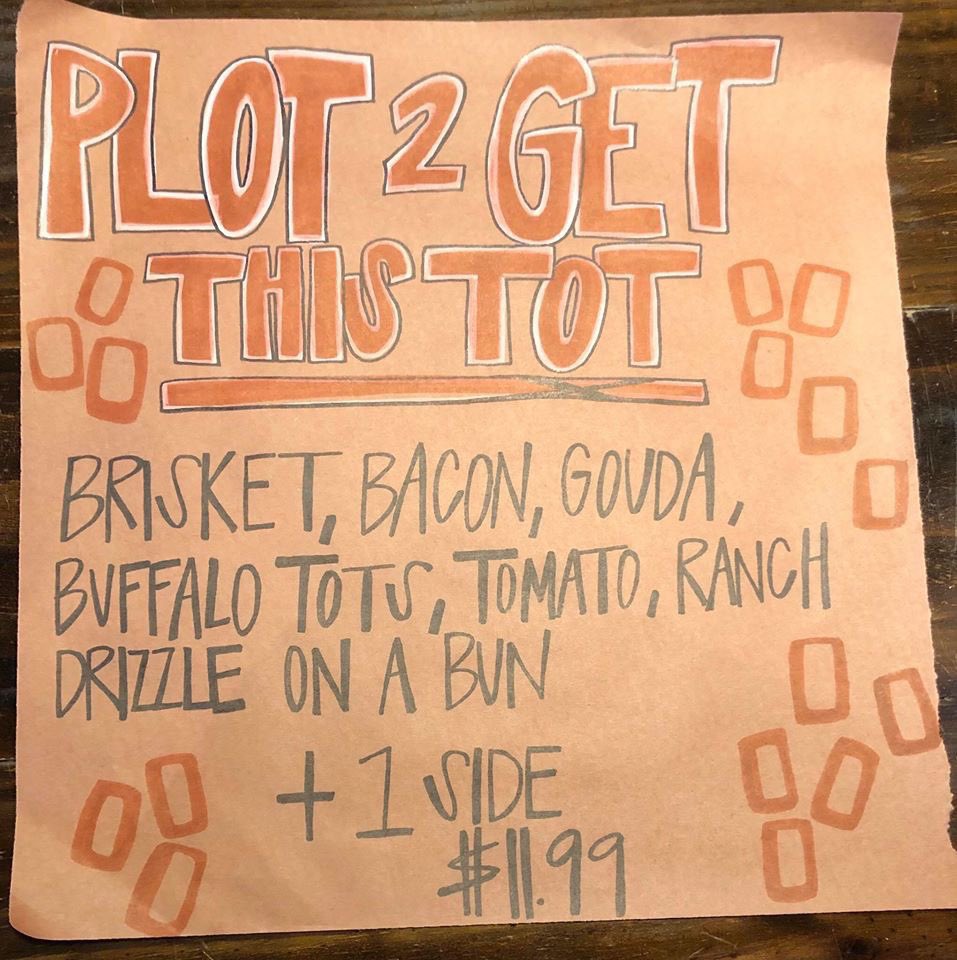 PLOT 2 GET
THIS TOT
BRISKET, BACON, GOUDA,
BUFFALO TOTS, TOMATO, RANCH
DRIZZLE ON A BUN
+ 1 SIDE
$11.99